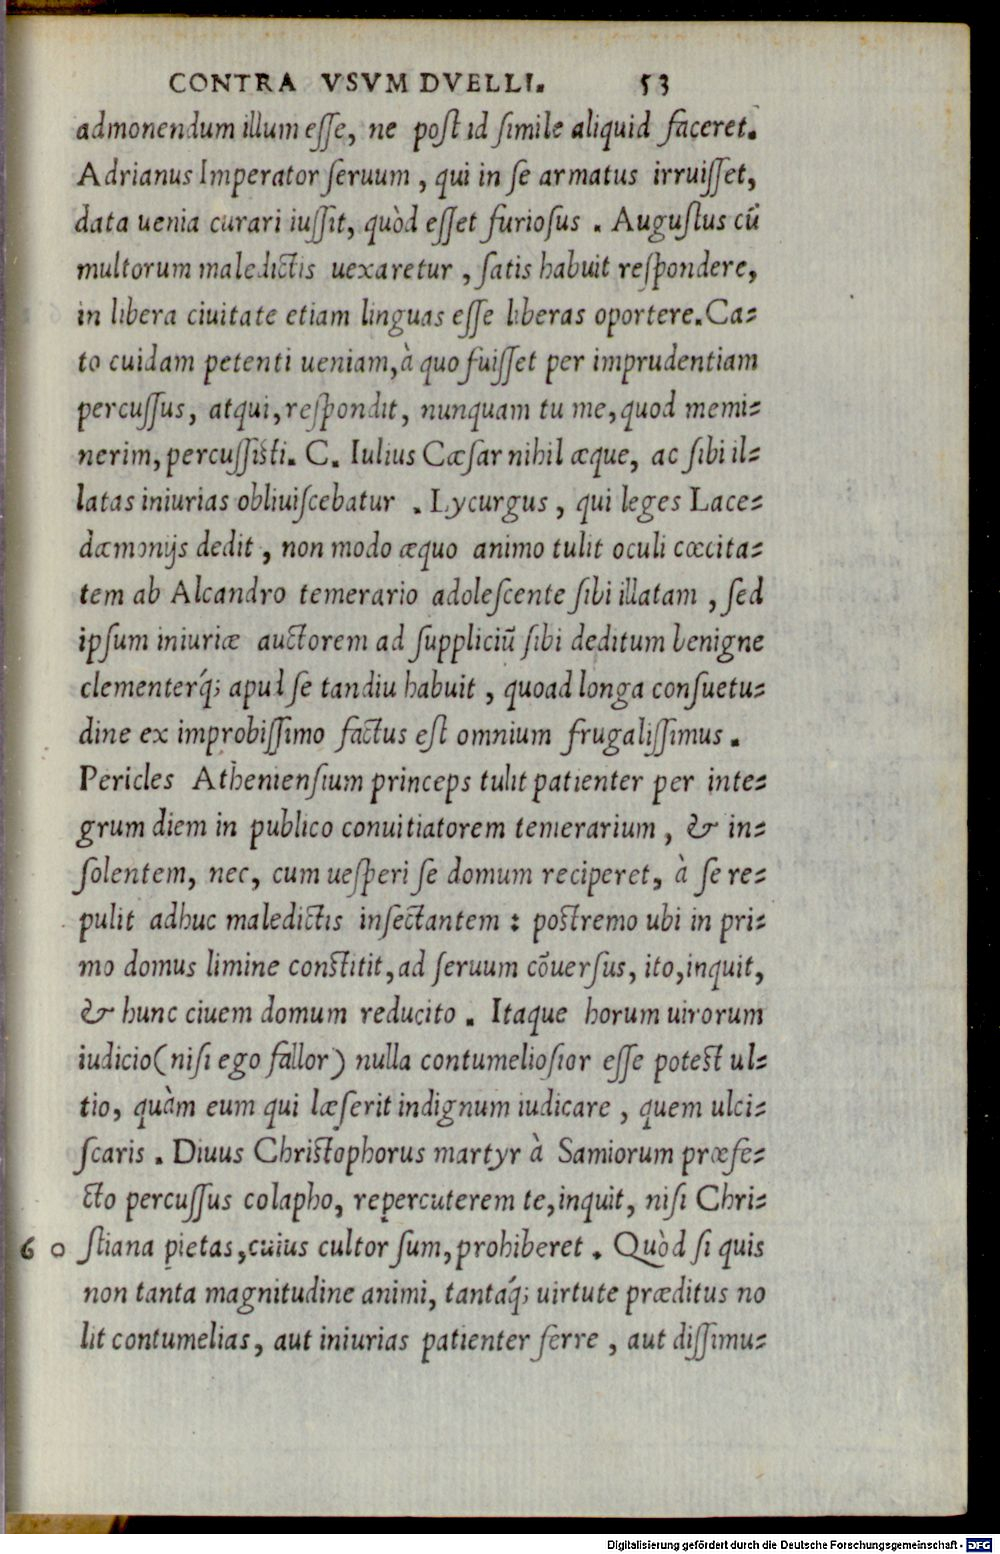 CONTRA VSVM DVELLI. 53
admonendum illum eſſe, ne poſt id ſimile aliquid faceret.
Adrianus Imperator ſeruum, qui in ſe armatus irruiſſet,
data uenia curari iuſſit, quòd eſſet furioſus. Auguſtus cū
multorum maledictis uexaretur, ſatis habuit reſpondere,
in libera ciuitate etiam linguas eſſe liberas oportere. Ca-
to cuidam petenti ueniam, à quo fuiſſet per imprudentiam
percuſſus, atqui, reſpondit, nunquam tu me, quod memi-
nerim, percuſſiſti. C. Iulius Cæſar nihil æque, ac ſibi il-
latas iniurias obliuiſcebatur. Lycurgus, qui leges Lace-
dæmonijs dedit, non modo æquo animo tulit oculi cœcita-
tem ab Alcandro temerario adoleſcente ſibi illatam, ſed
ipſum iniuriæ auctorem ad ſuppliciū ſibi deditum benigne
clementerq́; apud ſe tandiu habuit, quoad longa conſuetu-
dine ex improbiſſimo factus eſt omnium frugaliſſimus.
Pericles Athenienſium princeps tulit patienter per inte-
grum diem in publico conuitiatorem temerarium, & in-
ſolentem, nec, cum ueſperi ſe domum reciperet, à ſe re-
pulit adhuc maledictis inſectantem: poſtremo ubi in pri-
mo domus limine conſtitit, ad ſeruum cōuerſus, ito, inquit,
& hunc ciuem domum reducito. Itaque horum uirorum
iudicio (niſi ego fallor) nulla contumelioſior eſſe poteſt ul-
tio, quàm eum qui læſerit indignum iudicare, quem ulci-
ſcaris. Diuus Chriſtophorus martyr à Samiorum præfe-
cto percuſſus colapho, repercuterem te, inquit, niſi Chri-
60 ſtiana pietas, cuius cultor ſum, prohiberet. Quòd ſi quis
non tanta magnitudine animi, tantaq́; uirtute præditus no
lit contumelias, aut iniurias patienter ferre, aut diſſimu-
Digitalisierung gefördert durch die Deutsche Forschungsgemeinschaft - DFG